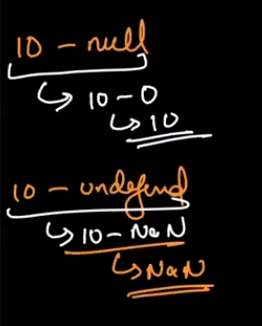 10 - null
↳ 10 - 0
↳ 10
10 - undefind
↳ 10 - NaN
↳ NaN